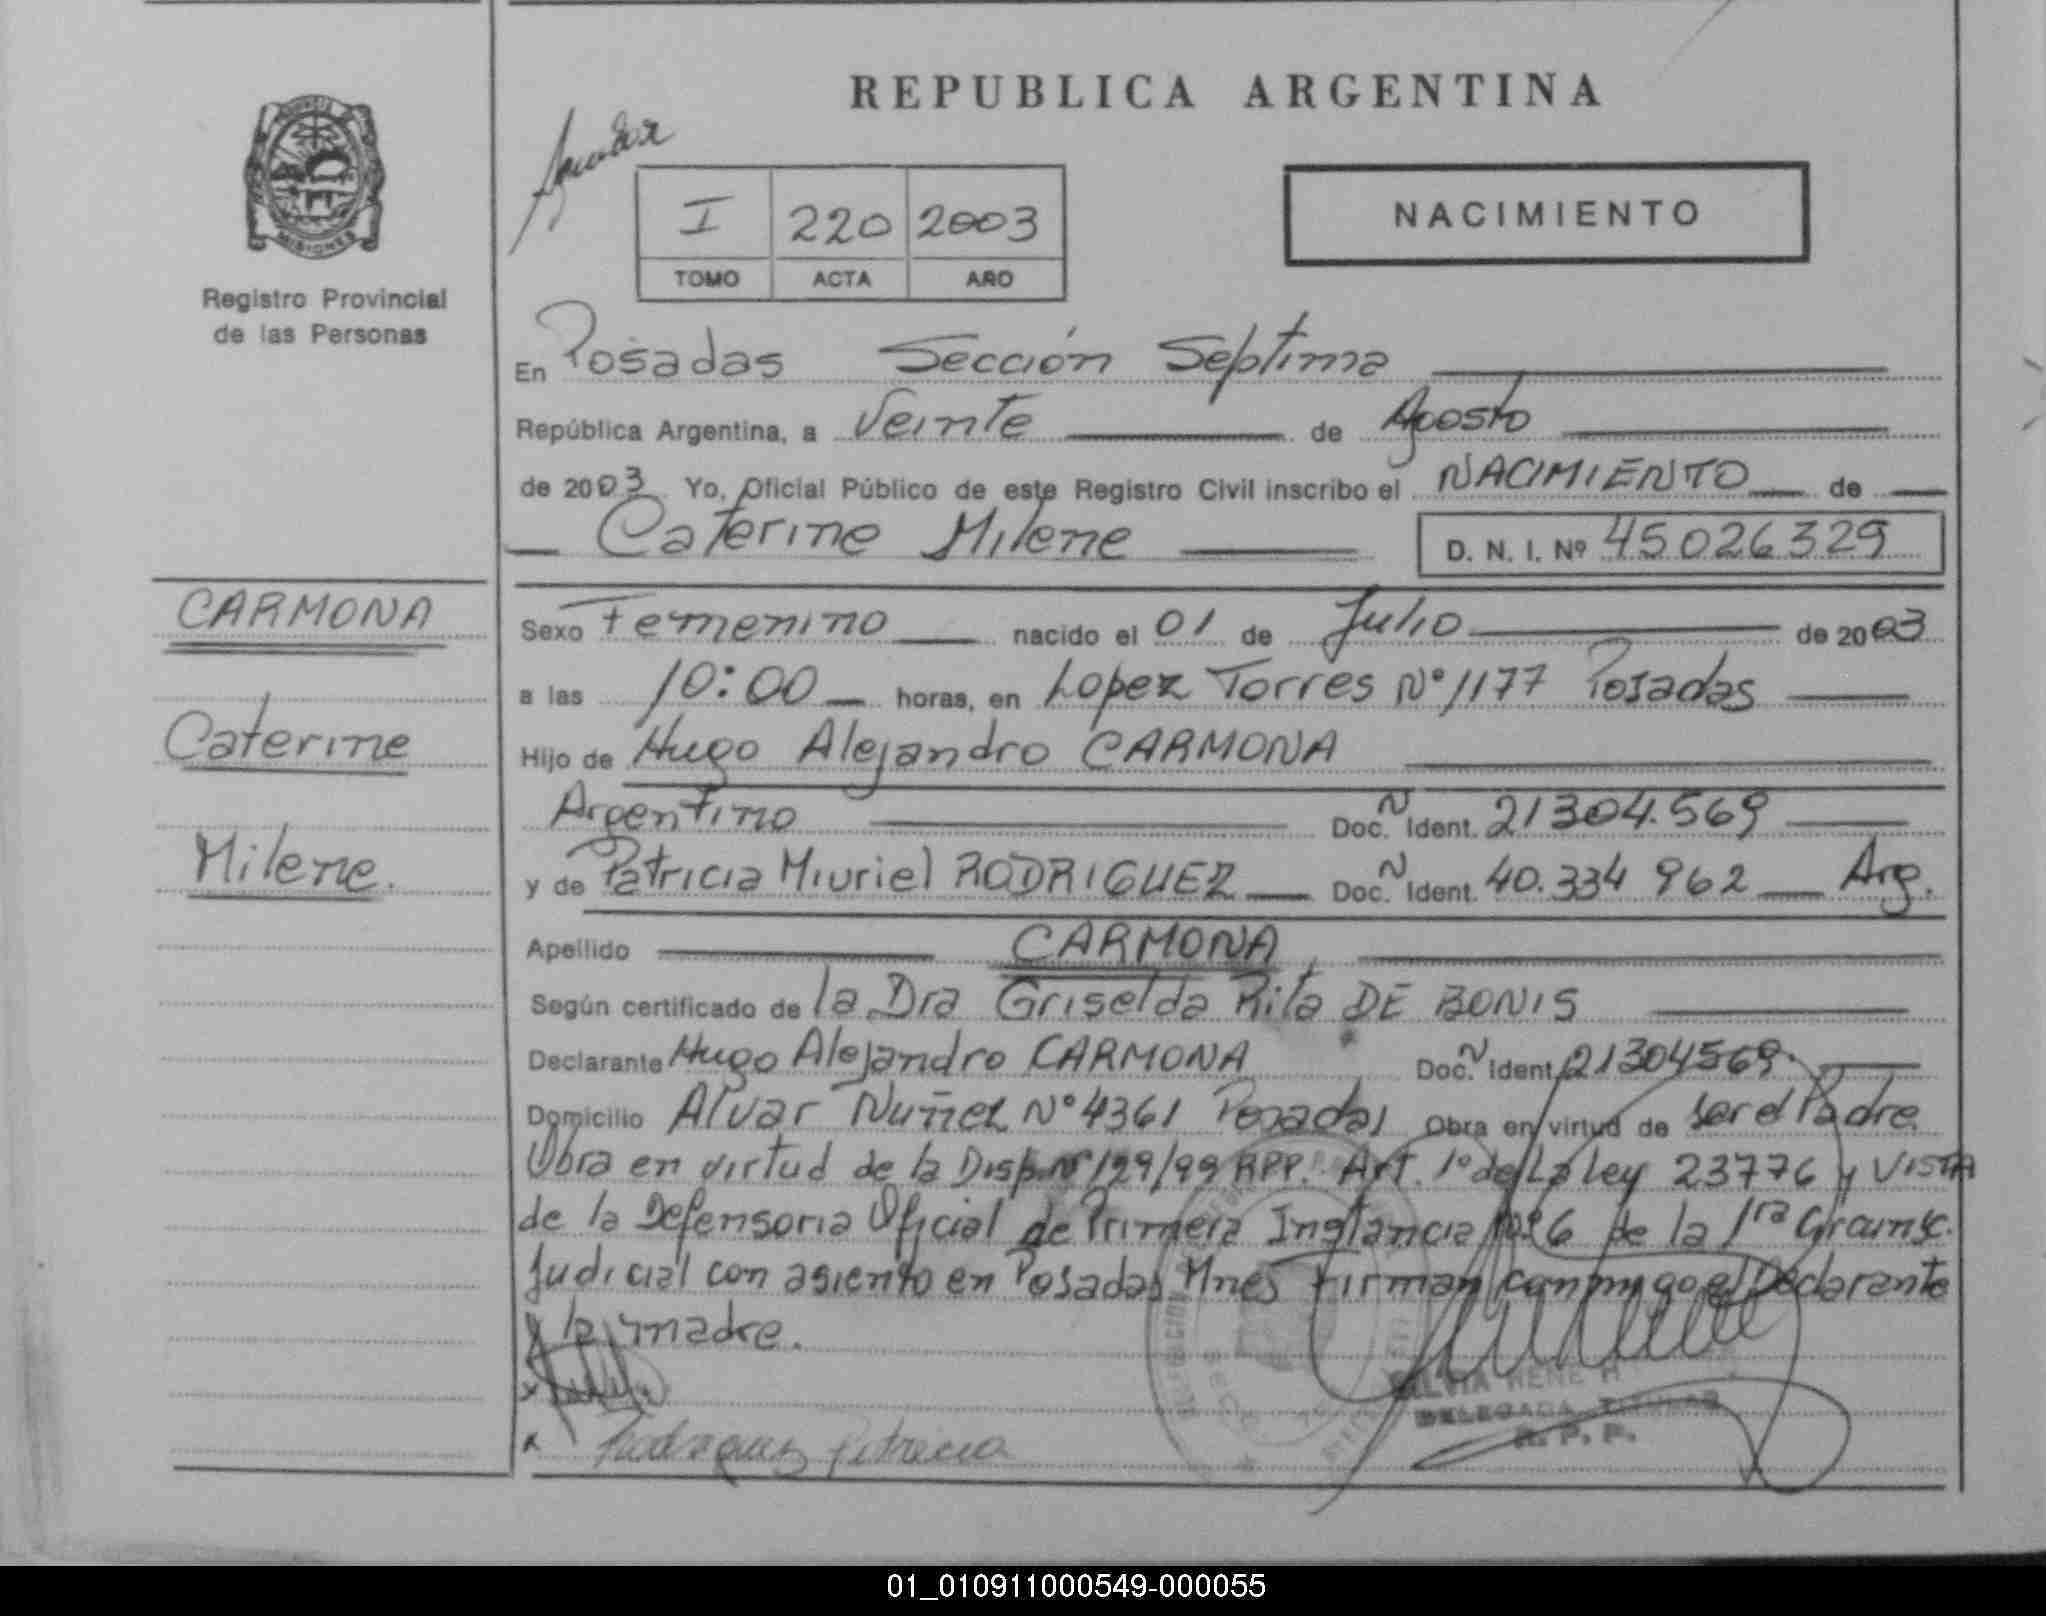 REPUBLICA ARGENTINA
MISIONES
Registro Provincial
de las Personas
I 220 2003
TOMO ACTA AÑO
NACIMIENTO
En Posadas Sección Septima
República Argentina, a Veinte de Agosto
de 2003 Yo, Oficial Público de este Registro Civil inscribo el NACIMIENTO de
Caterine Milene D. N. I. Nº 45026329
CARMONA
Caterine
Milene.
Sexo Femenino nacido el 01 de Julio de 2003
a las 10:00 horas, en Lopez Torres Nº 1177 Posadas
Hijo de Hugo Alejandro CARMONA
Argentino Doc. N Ident. 21304.569
y de Patricia Miuriel RODRIGUEZ Doc. N Ident. 40.334 962 Arg.
Apellido CARMONA
Según certificado de la Dra Griselda Rita DE BONIS
Declarante Hugo Alejandro CARMONA Doc. N Ident. 21304569
Domicilio Alvar Nuñez Nº 4361 Posadas Obra en virtud de ser el Padre.
Obra en virtud de la Disp. Nº 129/99 RPP. Art. 1º de La Ley 23776 y VISTA
de la Defensoria Oficial de Primera Instancia Nº 6 de la 1ra Circunsc.
Judicial con asiento en Posadas Mnes Firman conmigo el Declarante
y la madre.
x
x Rodriguez Patricia
SILVIA RENE
DELEGADA TITULAR
R. P. P.
01_010911000549-000055